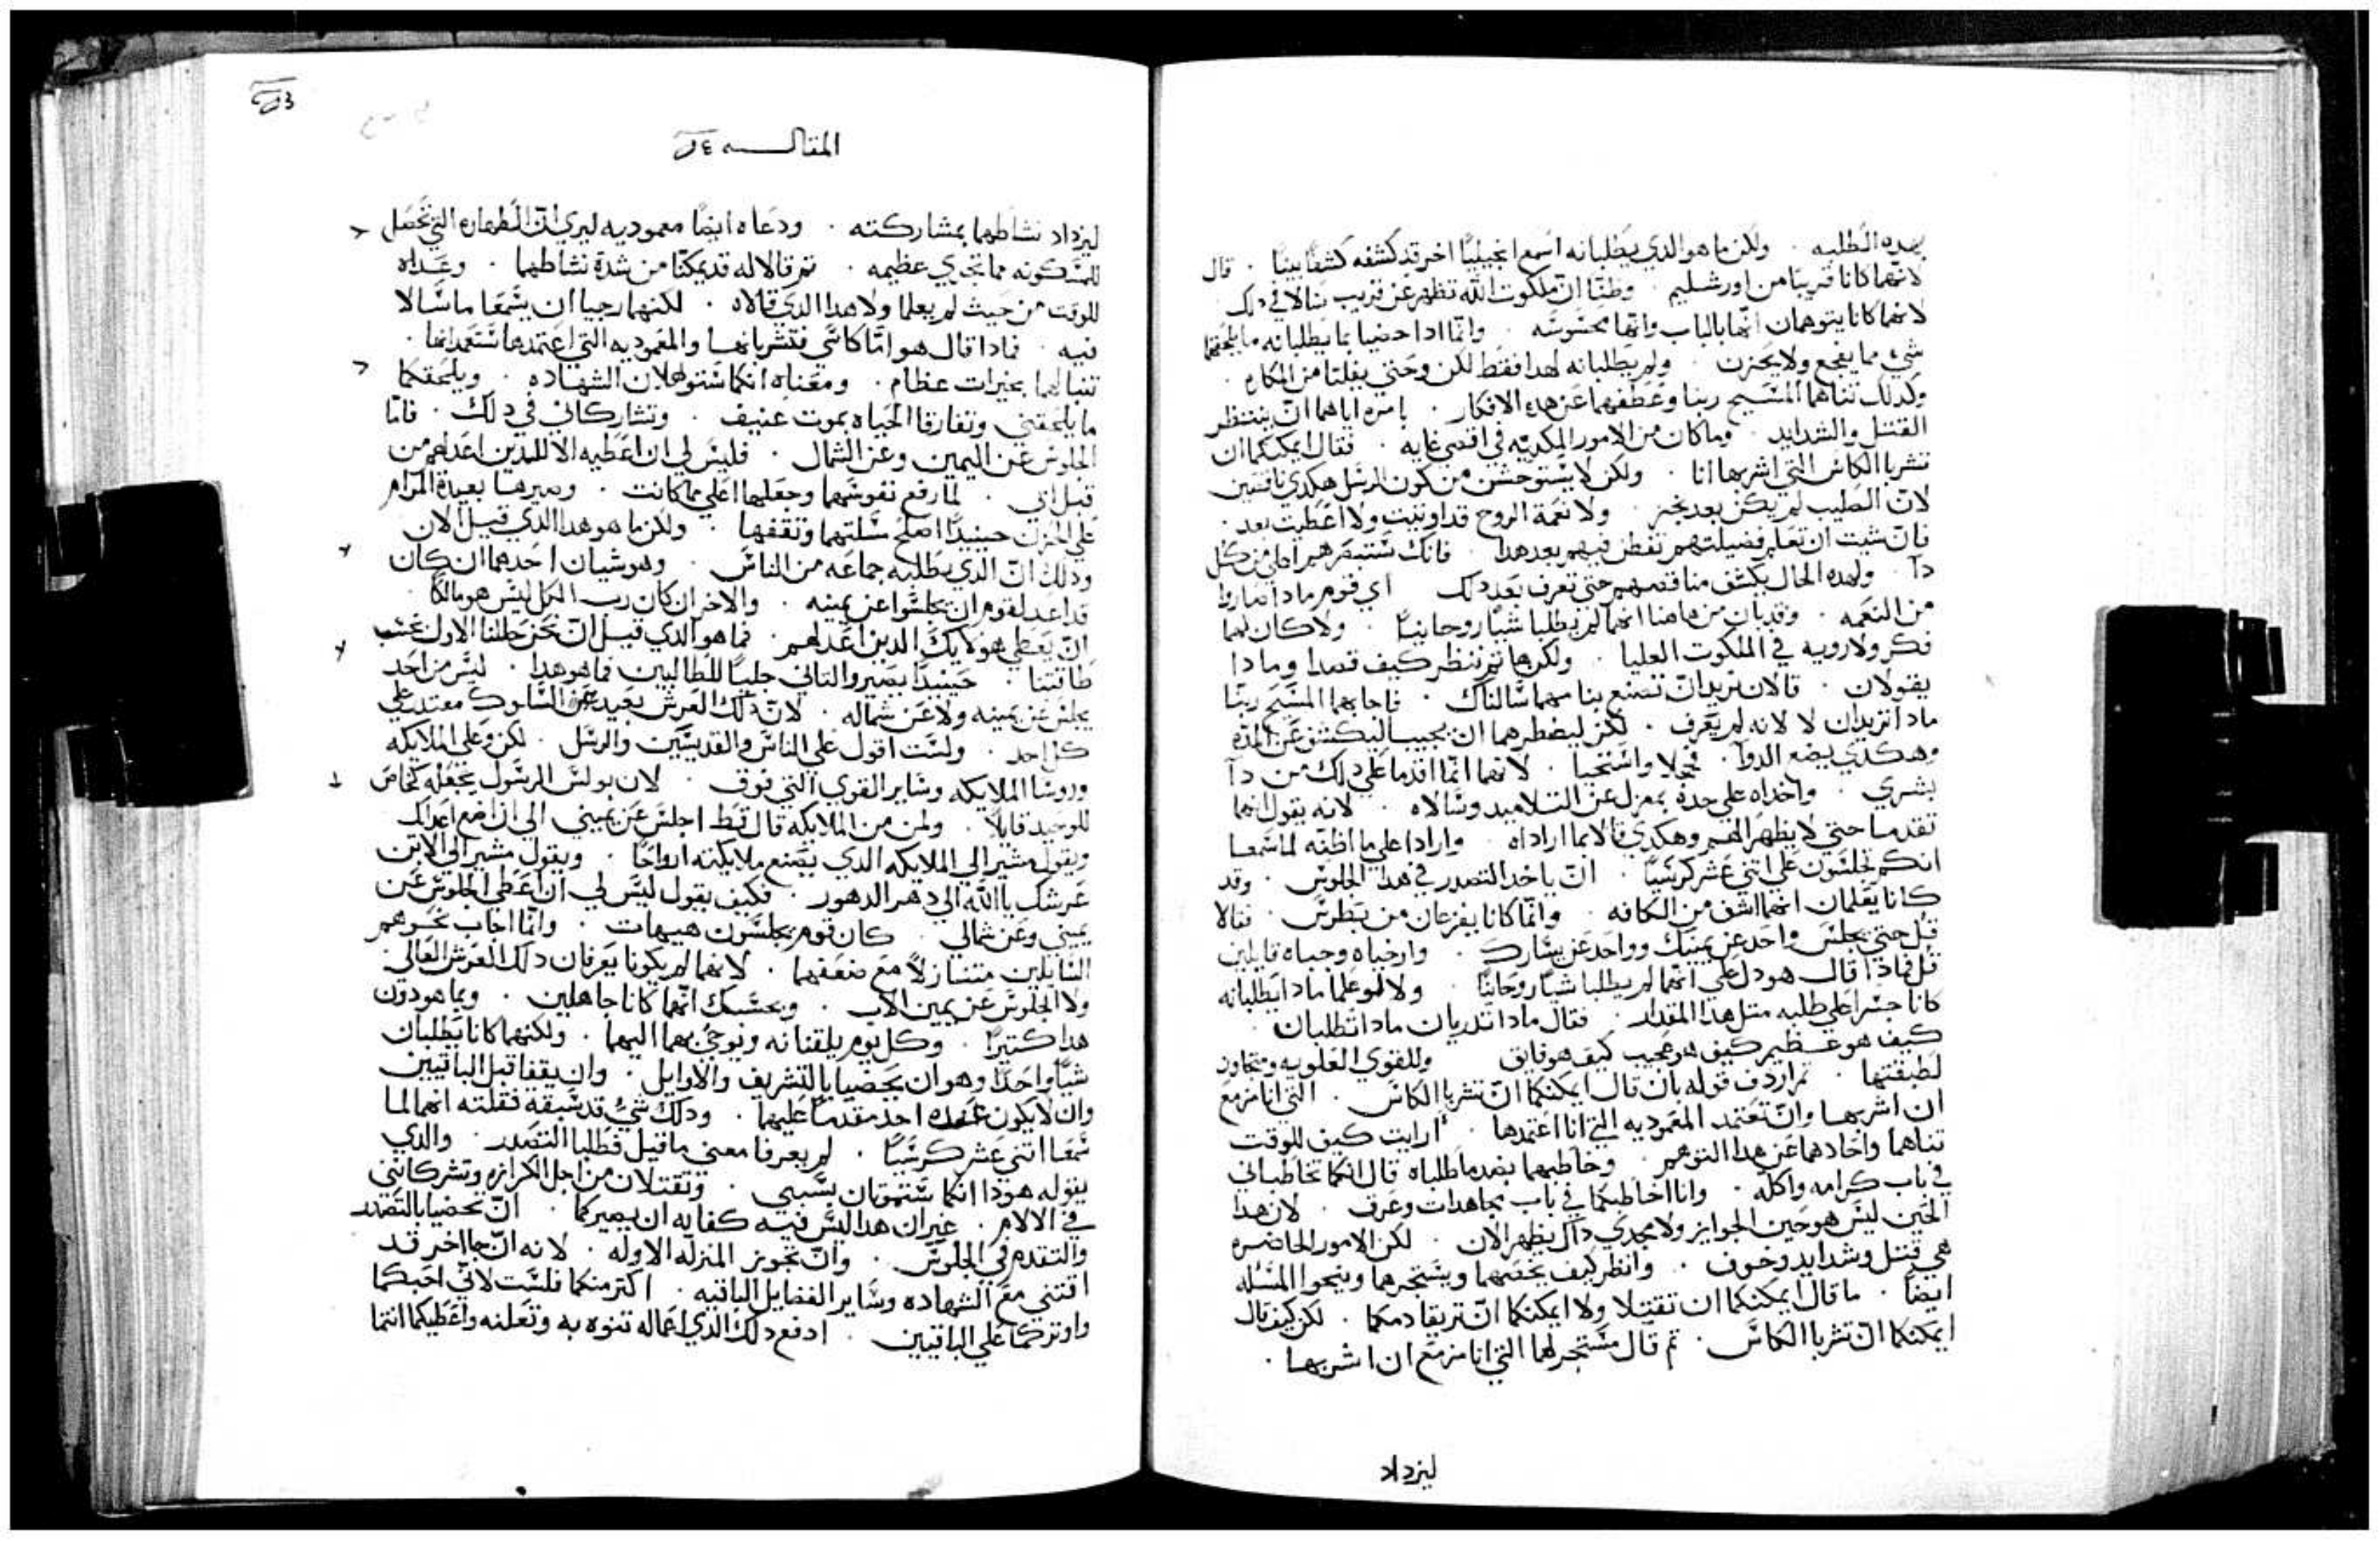 بهده الطلبه . ولكن ما هو الدي يطلبانه اسمع انجيليًا اخر قد كشفه كشفًا بينًا . قال
لانهما كانا قريبًا من اورشليم . وظنّا ان ملكوت الله تظهر عن قريب سالا في دلك
لانهما كانا يتوهمان انها بالباب وانها محسوسه . وانما ادا حضيا بما يطلبانه ما يلحقهما
شي مما يفجع ولا يحزن . ولم يطلبانه لهدا فقط لكن وحتي يفلتا من المكاره .
وكدلك تناهما المسيح ربنا وعطفهما عن هده الافكار . بامره اياهما ان ينتظر
القتل والشدايد . وما كان من الامور المكديه في اقصي غايه . فقال ايمكنكما ان
تشربا الكاس التي اشربها انا . ولكن لا يستوحش من كون الرسل هكدي ناقصين
لان الصليب لم يكن بعد نجز . ولا نعمة الروح قد اوتيت ولا اعطيت بعد .
فان شيت ان تعلم فضيلتهم تفطن فيهم بعد هدا . فانك ستبصرهم اعلي من كل
دآ . ولهده الحال يكشف مناقصهم حتي تعرف بعد دلك اي قوم مادا صاروا
من النعمه . وقد بان من هاهنا انهما لم يطلبا شيًا روحانيًا . ولا كان لهما
فكر ولا رويه في الملكوت العليا . ولكن هاتم ننظر كيف قصدا وما دا
يقولان . قالا نريد ان تصنع بنا مهما سالناك . فاجابهما المسيح ربنا
مادا تريدان لا لانه لم يعرف . لكن ليضطرهما ان يجيبا ليكشف عن المده
وهكدي يضع الدوآ . فخجلا واستحيا . لانهما انما اقدما علي دلك من دآ
بشري . واخداه علي حدة بمعزل عن التلاميد وسالاه . لانه يقول انهما
تقدما حتي لا يظهر لهم وهكدي قالا ما ارادا . وارادا علي ما اظنه لما سمعا
انكم تجلسون علي اتني عشر كرسيًا . ان ياخدا التصدر في هدا الجلوس . وقد
كانا يعلمان انهما اشف من الكافه . وانما كانا يفزعان من بطرس . فقالا
قل حتي يجلس واحد عن يمينك وواحد عن يسارك . وارخياه وجباه قايلين
قل فمادا قال هو دل علي انهما لم يطلبا شيًا روحانيًا . ولا لو علما مادا يطلبانه
كانا جسرا علي طلبه متل هدا المقدار . فقال مادا تدريان مادا تطلبان .
كيف هو عظيم كيف هو عجيب كيف هو فايق وللقوي العلويه ومتجاوز
لطبقتها . تم اردف قوله بان قال ايمكنكما ان تشربا الكاس . التي انا مزمع
ان اشربها وان تعتمد المعموديه التي انا اعتمدها . ارايت كيف للوقت
تناهما واحادهما عن هدا التوهم . وخاطبهما بضد ما طلباه قال انكما تخاطباني
في باب كرامه واكله . وانا اخاطبكما في باب مجاهدات وعرف . لان هدا
الحين ليس هو حين الجوايز ولا مجدي دآل يظهر الان . لكن الامور الحاضره
هي قتل وشدايد وخوف . وانظر كيف يخصهما ويستجرهما وينحوا المسله
ايضًا . ما قال ايمكنكما ان تقتلا ولا ايمكنكما ان تريقا دمكما . لكن كيف قال
ايمكنكما ان تشربا الكاس . تم قال مستجرًا لهما التي انا مزمع ان اشربها .
ليزداد
المقاله
ليزداد نشاطهما بمشاركته . ودعاه ايضًا معموديه ليري ان الطهاره التي تحصل
للمسكونه مما تجري عظيمه . تم قالا له قد يمكنّا من شدة نشاطهما . وعداه
للوقت من حيث لم يعلما ولا هدا الدي قالاه . لكنهما رجيا ان يسمعا ما سالا
فيه . فمادا قال هو امّا كاسي فتشربانها والمعموديه التي اعتمدها ستعمدانها .
تنبا لهما بخيرات عظام . ومعناه انكما ستوهلان الشهاده . ويلحقكما
ما يلحقني وتفارقا الحياه بموت عنيف . وتشاركاني في دلك . فامّا
الجلوس عن اليمين وعن الشمال . فليس لي ان اعطيه الا للدين اعد لهم من
قبل ابي . لما رفع نفوسهما وجعلهما اعلي مما كانت . وصيرها بعيدة المرام
علي الحزن حينيدًا اصلح مسلتهما وثقفها . ولكن ما هو هدا الدي قيل الان
ودلك ان الدي يطلبه جماعه من الناس . وهو شيان احدهما ان كان
قد اعد لقوم ان يجلسوا عن يمينه . والاخر ان كان رب الكل ليس هو مالكًا
ان يعطي هولايك الدين اعد لهم . فما هو الدي قيل ان نحن حللنا الاول بحسب
طاقتنا . حينيدًا يصير والتاني جليًا للطالبين فما هو هدا . ليس من احد
يجلس عن يمينه ولا عن شماله . لان دلك العرش بعيد عن السلوك معتد علي
كل احد . ولست اقول علي الناس والقديسين والرسل . لكن وعلي الملايكه
وروسا الملايكه وساير القوي التي فوق . لان بولس الرسول يجعله كخاص
للوحيد قايلًا . ولمن من الملايكه قال قط اجلس عن يميني الي ان اضع اعداك
ويقول مشير الي الملايكه الدي يصنع ملايكته ارواحًا . ويقول مشير الي الابن
عرشك يا الله الي دهر الدهور . فكيف يقول ليس لي ان اعطي الجلوس عن
يميني وعن شمالي . كان قوم يجلسون هيهات . وانّما اجاب نحوهم
السايلين متنازلًا مع ضعفهما . لانهما لم يكونا يعرفان دلك العرش العالي
ولا الجلوس عن يمين الاب . وبحسبك انهما كانا جاهلين . وبما هو دون
هدا كتيرًا . وكل يوم يلقنانه ويوحي بهما اليهما . ولكنهما كانا يطلبان
شيًا واحدًا وهو ان يحضيا بالتشريف والاوايل . وان يقفا قبل الباقيين
وان لا يكون عنده احد مقدمًا عليهما . ودلك شي قد سبقة فقلته انهما لما
سمعا اتني عشر كرسيًا . لم يعرفا معني ما قيل فطلبا التصدر . والدي
يقوله هو دا انكما ستموتان بسببي . وتقتلان من اجل الكرازه وتشركانني
في الالام . غير ان هدا ليس فيه كفايه ان يصيركما . ان تحضيا بالتصدر
والتقدم في الجلوس . وان تحوز المنزله الاوله . لانه ان جا اخر قد
اقتني مع الشهاده وساير الفضايل الباقيه . اكتر منكما فلست لاني احبكما
واوتركما علي الباقيين . ادفع دلك الدي اعماله تنوه به وتعلنه واعطيكما انتما